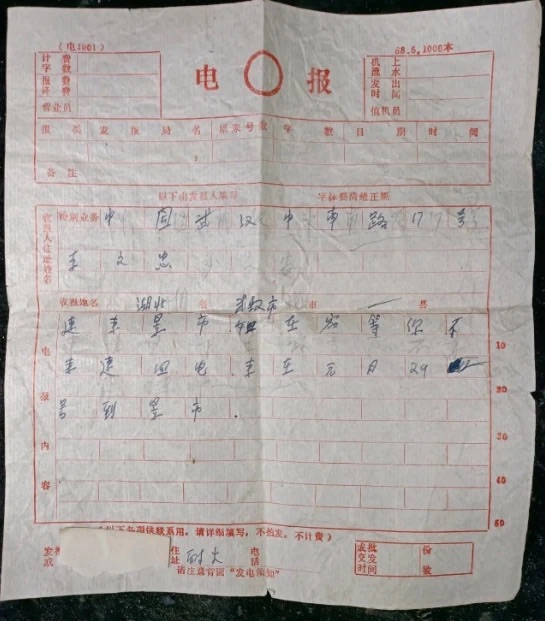 (电1901)
68.6,1000本
计费字数
报费
译费
营业员
电 报
机上流水
发出时间
值机员
报类 发报局名 原来号数 字数 日期 时间
备注
以下由发报人填写
字体要简楷正规
收报人住址姓名
特别业务 中国武汉中 路171号
李文忠
收报地名 湖北省 武汉市 市 一 县
电报内容
速来昱市 在宕等你不 10
来速回电.来在元月29 20
号到昱市. 30
40
50
(以下各项供联系用,请详细填写,不拍发,不计费)
住址 耐火 电话
请注意背面“发电须知”
或批交发时间
份数